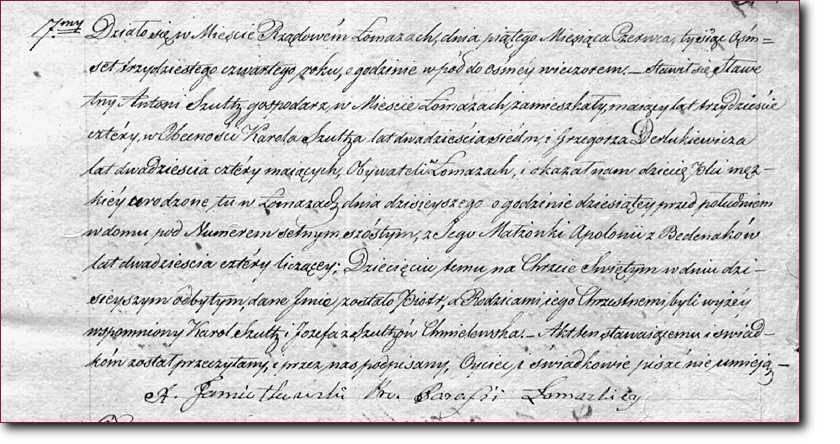 7.my Działo się w Mieście Rządowem Łomazach, dnia piątego Miesiąca Czerwca, tysiąc Ośm=
set trzydziestego czwartego, roku, o godzinie w pół do osmey wieczorem. — Stawił się Sławe
tny Antoni Szultz gospodarz, w Mieście Łomazach, zamieszkały, maiący lat trzydzieście
cztéry, w Obecności Karola Szultza lat dwadzieścia siedm, i Grzegorza Derlukiewicza
lat dwadzieścia cztéry maiących, Obywateli w Łomazach, i okazał nam dziecię Płci męz-
kiéy urodzone, tu w Łomazach dnia dzisieyszego o godzinie dziesiątey przed południem
w domu pod Numerem setnym szóstym, z Jego Małżonki Apolonii z Bedenaków
lat dwadzieścia cztéry liczącey; Dziecięciu temu na Chrzcie Świętym w dniu dzi-
sieyszym odbytym, dane Jmie, zostało Piotr, a Rodzicami, iego Chrzestnemi, byli wyżéy
wspomniony Karol Szultz i Jozefa z Szultzów Chmielewska. — Akt ten stawaiącemu i świad-
kóm został przeczytany, i przez nas podpisany, Oyciec i świadkowie pisać nie umieją —
X. Kw. Parafii Łomazkiey